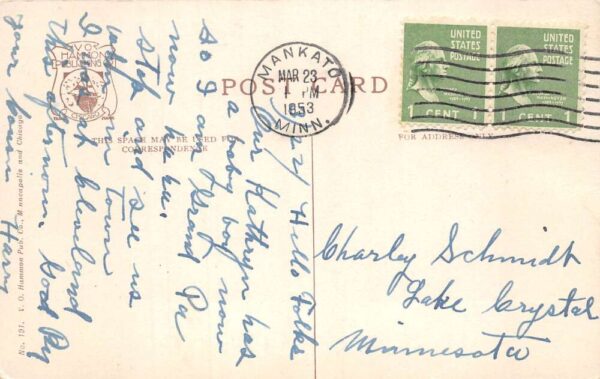 V O
HAMMON
PUBLISHING
CO
CHICAGO
POST CARD
THIS SPACE MAY BE USED FOR
CORRESPONDENCE
FOR ADDRESS ONLY
MANKATO
MAR 23
1 PM
1953
MINN.
UNITED
STATES
POSTAGE
1 CENT 1
UNITED
STATES
POSTAGE
1 CENT 1
3/22/ Hello Folks
Our Kathryn has
a baby boy now
So I am Grant Pa
now a da ha.
Stop and see us
when in town
I was at Cleveland
this afternoon. Good By
your cousin Harry
Charley Schmidt
Lake Crystal
Minnesota
No. 191. V. O. Hammon Pub. Co., Minneapolis and Chicago